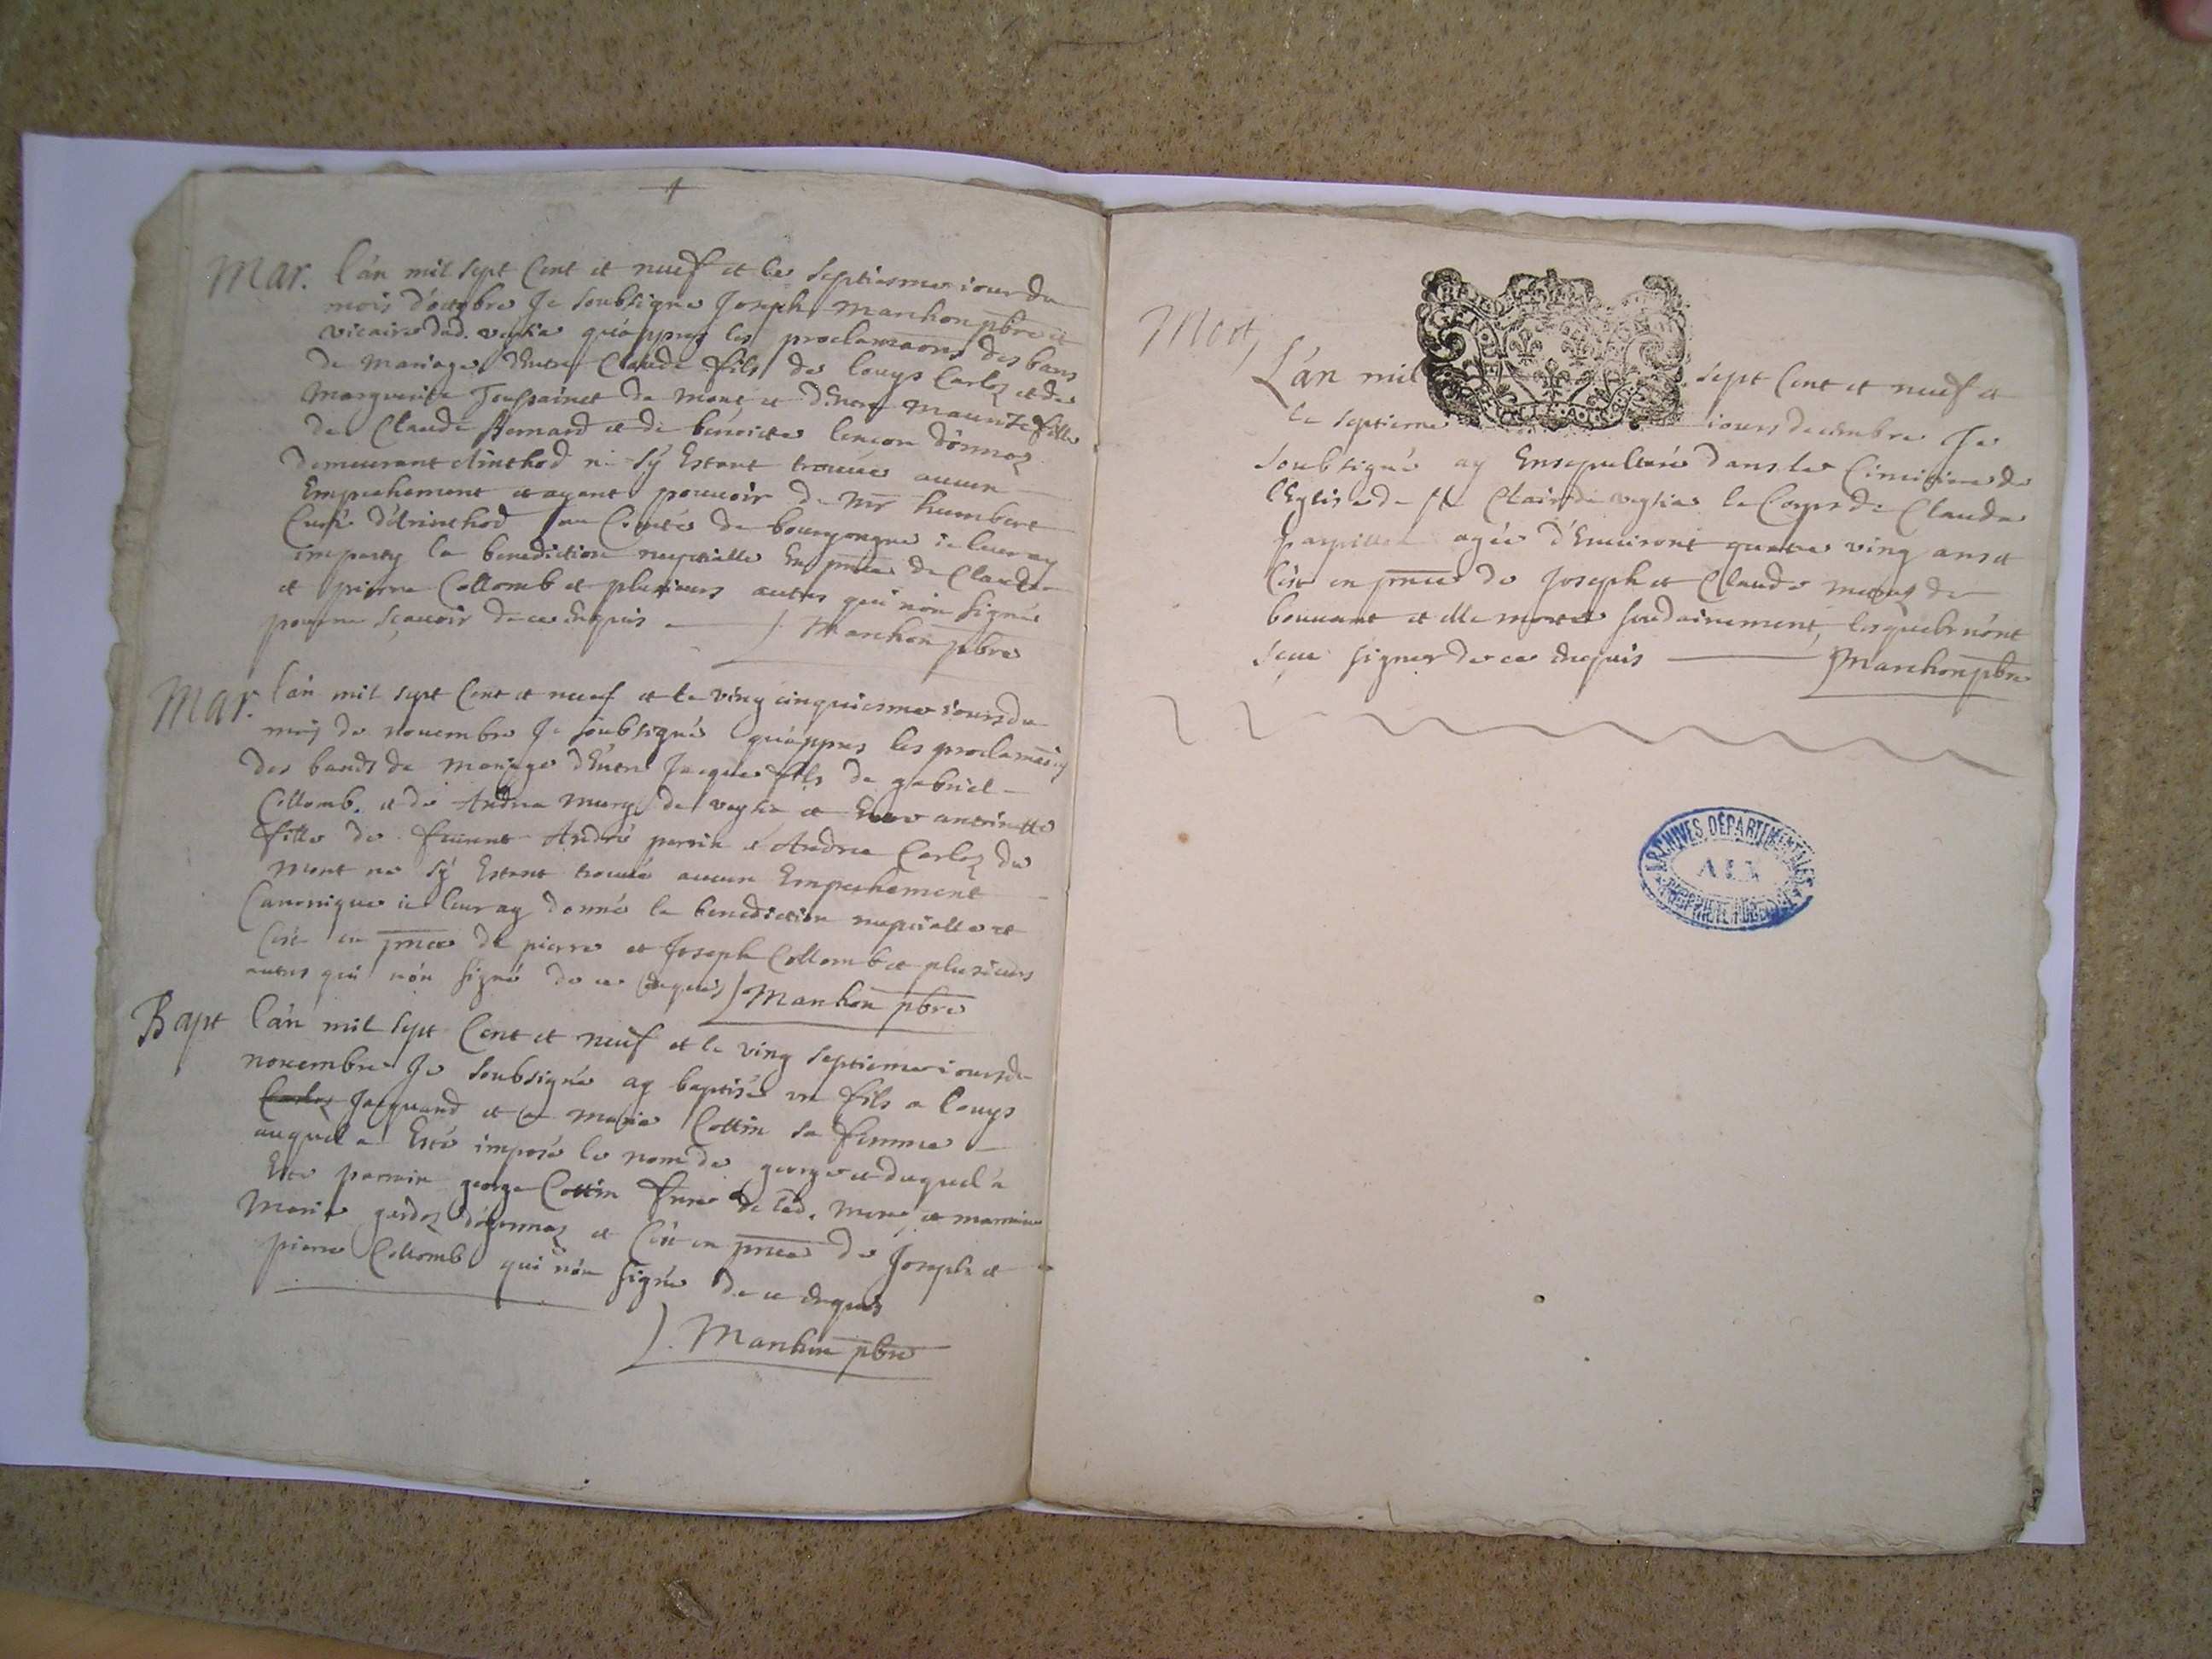 Mar. l'an mil sept Cent et neuf et le septiesme iour du
mois d'octobre Je soubsigné Joseph Marchon pbre et
vicaire dud. veglia qu'apprez les proclamaons des bans
de Mariage d'Entre Claude fils de louys Carloz et de
Margueritte Toussainct de Mont, et d'Entre Maurize fille
de Claude Bernard et de benoicte lencon d'onnoz
demeurant Arinthod ne s'y Estant trouvée aucun
Empechement et ayant pouvoir de Mr humbert
Curé d'Arinthod au Comté de bourgongne ie leur ay
imparty la benediction nuptialle En pnce de Claude
et pierre Collomb et plusieurs autres qui n'on signé
pour ne sçavoir de ce Enquis J Marchon pbre
Mar. l'an mil sept Cent et neuf et le ving cinquiesme iours du
mois de novembre Je soubsigné qu'appres les proclamaons
des bands de Mariage d'Entre Jacque fils de gabriel
Collomb. et de Andrea Murge de veglia et Entre antoinette
fille de Andre perrin et Andrea Carloz du
Mont ne s'y Estant trouvée aucun Empechement
Canonique ie leur ay donné la benediction nuptialle et
C'est en pnce de pierre et Joseph Collomb et plusieurs
autres qui n'on signé de ce Enquis J Marchon pbre
Bapt l'an mil sept Cent et neuf et le ving septieme iours de
novembre Je soubsigné ay baptisé un fils a louys
Carloz Jacquand et a Maria Cottin sa femme
auquel a Esté imposé le nom de george et duquel a
Esté parrain george Cottin frere de lad. Mere, et marraine
Maria et C'est en pnce de Joseph et
pierre Collomb qui n'on signé de ce Enquis
J. Marchon pbre
Mort,
L'an mil sept Cent et neuf et
le septieme iours decembre Je
soubsigné ay Ensepulturé dans le Cimitiere de
l'Eglise de St Clair de veglia le Corps de Clauda
parpillon agée d'Environt quatre ving ans et
C'est en pnce de Joseph et Claude de
bouvant et elle morte soudainement, lesquels n'ont
sceu signer de ce Enquis J Marchon pbre
ARCHIVES DÉPARTEMENTALES
AIN
PROPRIÉTÉ PUBLIQUE